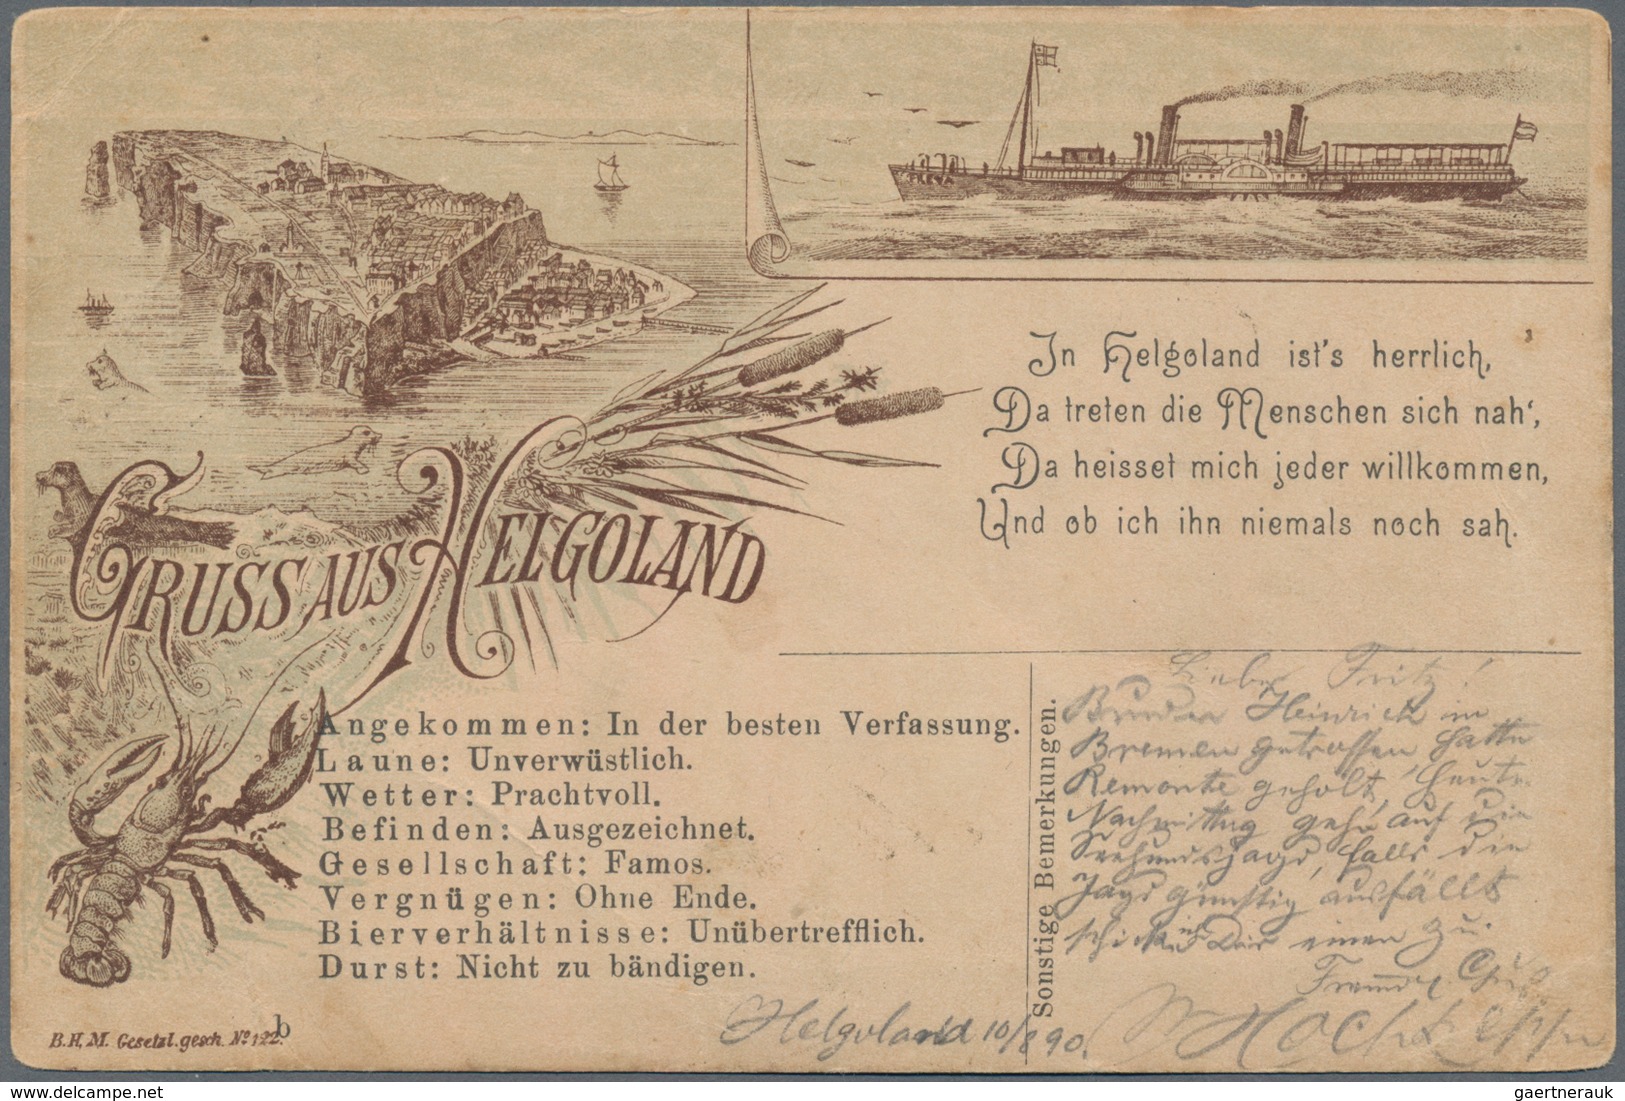 In Helgoland ist's herrlich,
Da treten die Menschen sich nah',
Da heisset mich jeder willkommen,
Und ob ich ihn niemals noch sah.
GRUSS AUS HELGOLAND
Angekommen: In der besten Verfassung.
Laune: Unverwüstlich.
Wetter: Prachtvoll.
Befinden: Ausgezeichnet.
Gesellschaft: Famos.
Vergnügen: Ohne Ende.
Bierverhältnisse: Unübertrefflich.
Durst: Nicht zu bändigen.
Sonstige Bemerkungen.
Lieber Fritz!
Bruder Heinrich in
Bremen getroffen, hatte
Remonte geholt, heute
Nachmittag geh' auf die
Seehundsjagd, falls die
Jagd günstig ausfällt
schick ich Dir einen zu.
Helgoland 10/8 90.
B.H.M. Gesetzl. gesch. No 122 b
delcampe.net
gaertnerauk